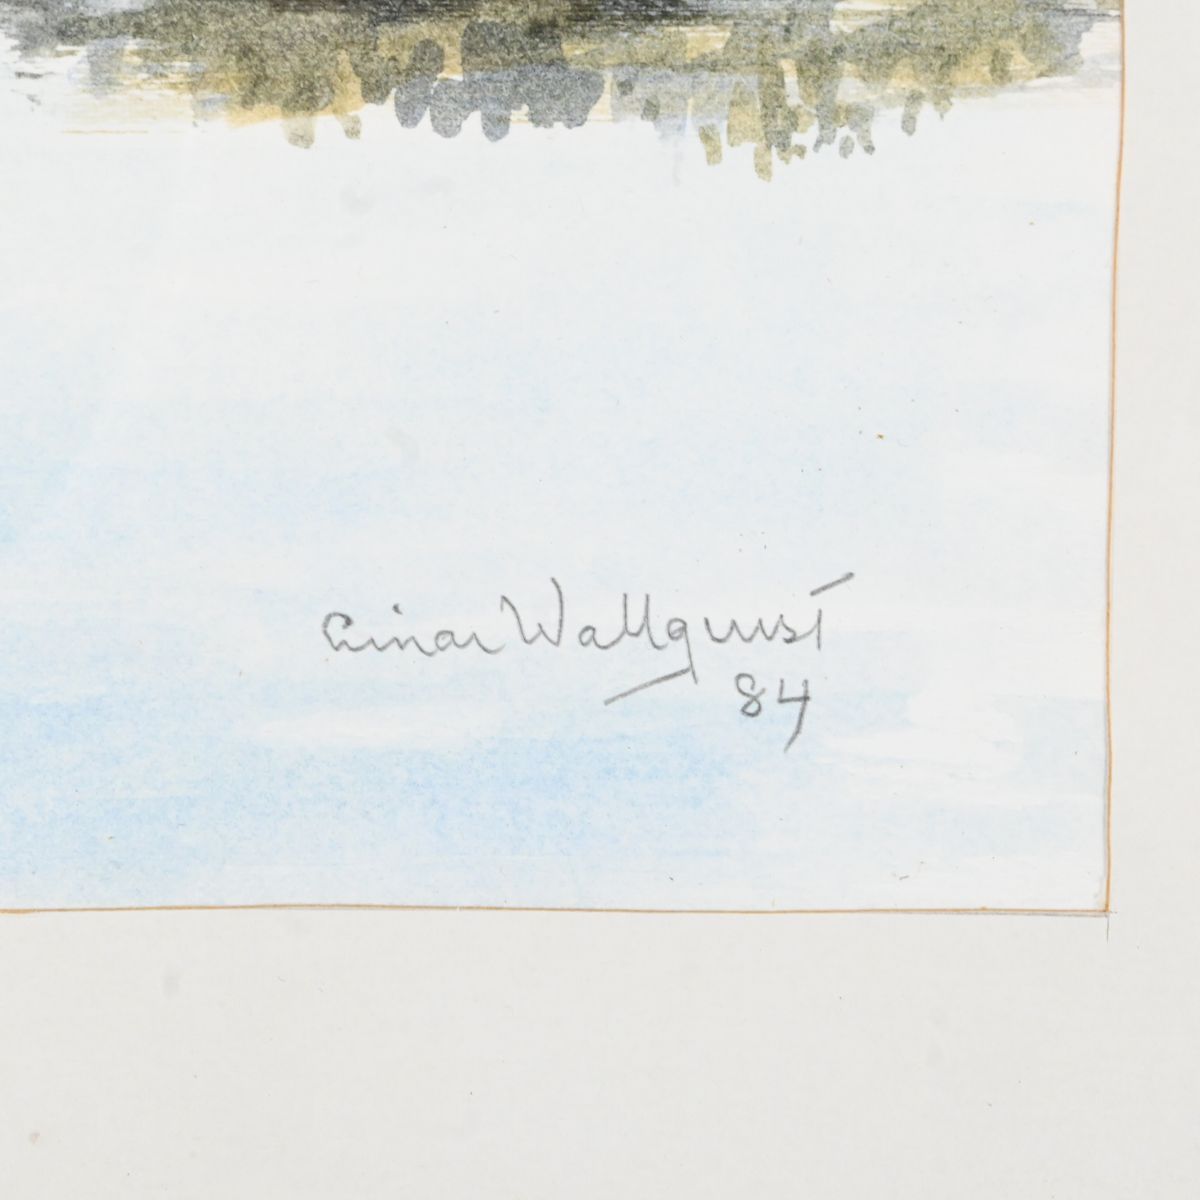 Einar Wallquist
84